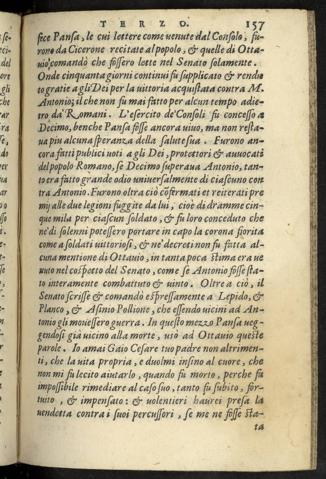 TERZO. 157
fice Pansa, le cui lettere come venute dal Consolo, fu-
rono da Cicerone recitate al popolo, & quelle di Otta-
uio comandò che fossero lotte nel Senato solamente.
Onde cinquanta giorni continui fu supplicato & rendu
to gratie a gli Dei per la uittoria acquistata contra M.
Antonio; il che non fu mai fatto per alcun tempo adie-
tro da Romani. L'esercito de' Consoli fu concesso a
Decimo, benche Pansa fosse ancora uiuo, ma non resta-
ua piu alcuna speranza della salute sua. Furono an-
cora fatti publici uoti a gli Dei, protettori & auuocati
del popolo Romano, se Decimo superaua Antonio, tan-
to era fatto grande odio uniuersalmente di ciascuno con
tra Antonio. Furono oltra ciò cōfermati et reiterati pre
mij alle due legioni fuggite da lui, cioè di dramme cin-
que mila per ciascun soldato, & fu loro conceduto che
ne' di solenni potessero portare in capo la corona fiorita
come a soldati uittoriosi, & ne' decreti non fu fatta al-
cuna mentione di Ottauio, in tanta poca stima era ue
nuto nel cospetto del Senato, come se Antonio fosse sta-
to interamente combattuto & uinto. Oltre a ciò, il
Senato scrisse & comandò espressamente a Lepido, &
Planco, & Asinio Pollione, che essendo uicini ad An-
tonio gli mouessero guerra. In questo mezzo Pansa ueg-
gendosi gia uicino alla morte, usò ad Ottauio queste
parole. Io amai Gaio Cesare tuo padre non altrimen-
ti, che la uita propria, e duolmi insino al cuore, che
non mi fu lecito aiutarlo, quando fu morto, perche fu
impossibile rimediare al caso suo, tanto fu subito, for-
tuito, & impensato: & uolentieri haurei presa la
uendetta contra i suoi percussori, se me ne fosse sta-
ta